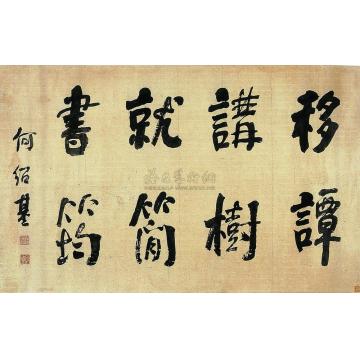 移譚
講樹
就簡
書筠
何紹基